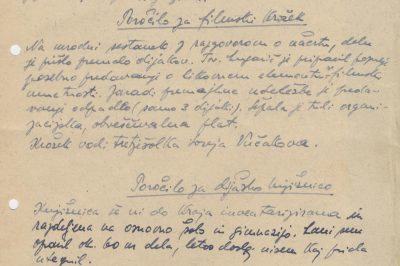 Poročilo za filmski krožek
Na uvodni sestanek z razgovorom o načrtu dela
je prišlo premalo dijakov. Tov. je pripravil
posebno predavanje o likovnem elementu filmske
umetnosti. Zaradi premajhne udeležbe je preda-
vanje odpadlo (samo 3 dijaki). Šepala je tudi organi-
zacijska, obveščevalna plat.
Krožek vodi tretješolka Vučakova.
Poročilo za dijaško knjižnico
Knjižnica še ni do kraja inventarizirana in
razdeljena na osnovno šolo in gimnazijo. Lani sem
opravil ok. 60 ur dela, letos doslej nisem kaj prida
utegnil.